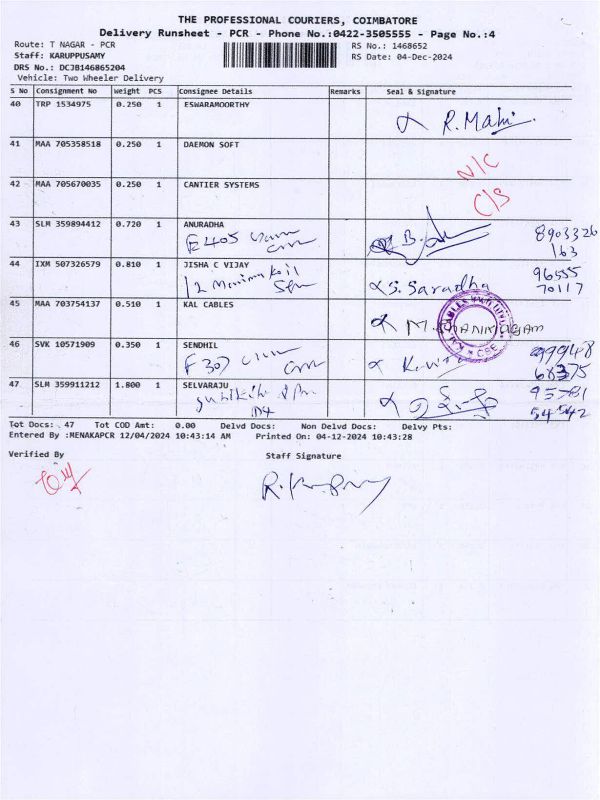 THE PROFESSIONAL COURIERS, COIMBATORE
Delivery Runsheet - PCR - Phone No.:0422-3505555 - Page No.:4
Route: T NAGAR - PCR RS No.: 1468652
Staff: KARUPPUSAMY RS Date: 04-Dec-2024
DRS No.: DCJB146865204
Vehicle: Two Wheeler Delivery
S No Consignment No Weight PCS Consignee Details Remarks Seal & Signature
40 TRP 1534975 0.250 1 ESWARAMOORTHY
R. Mani
41 MAA 705358518 0.250 1 DAEMON SOFT
N/C
42 MAA 705670035 0.250 1 CANTIER SYSTEMS
C/S
43 SLM 359894412 0.720 1 ANURADHA
E 405 8903326
163
44 IXM 507326579 0.810 1 JISHA C VIJAY 96555
12 S. Saradha 70117
45 MAA 703754137 0.510 1 KAL CABLES
M. MANIKAGAM
KAL CABLES
CBE
46 SVK 10571909 0.350 1 SENDHIL 99948
F 307 68375
47 SLM 359911212 1.800 1 SELVARAJU
54542
Tot Docs: 47 Tot COD Amt: 0.00 Delvd Docs: Non Delvd Docs: Delvy Pts:
Entered By :MENAKAPCR 12/04/2024 10:43:14 AM Printed On: 04-12-2024 10:43:28
Verified By Staff Signature